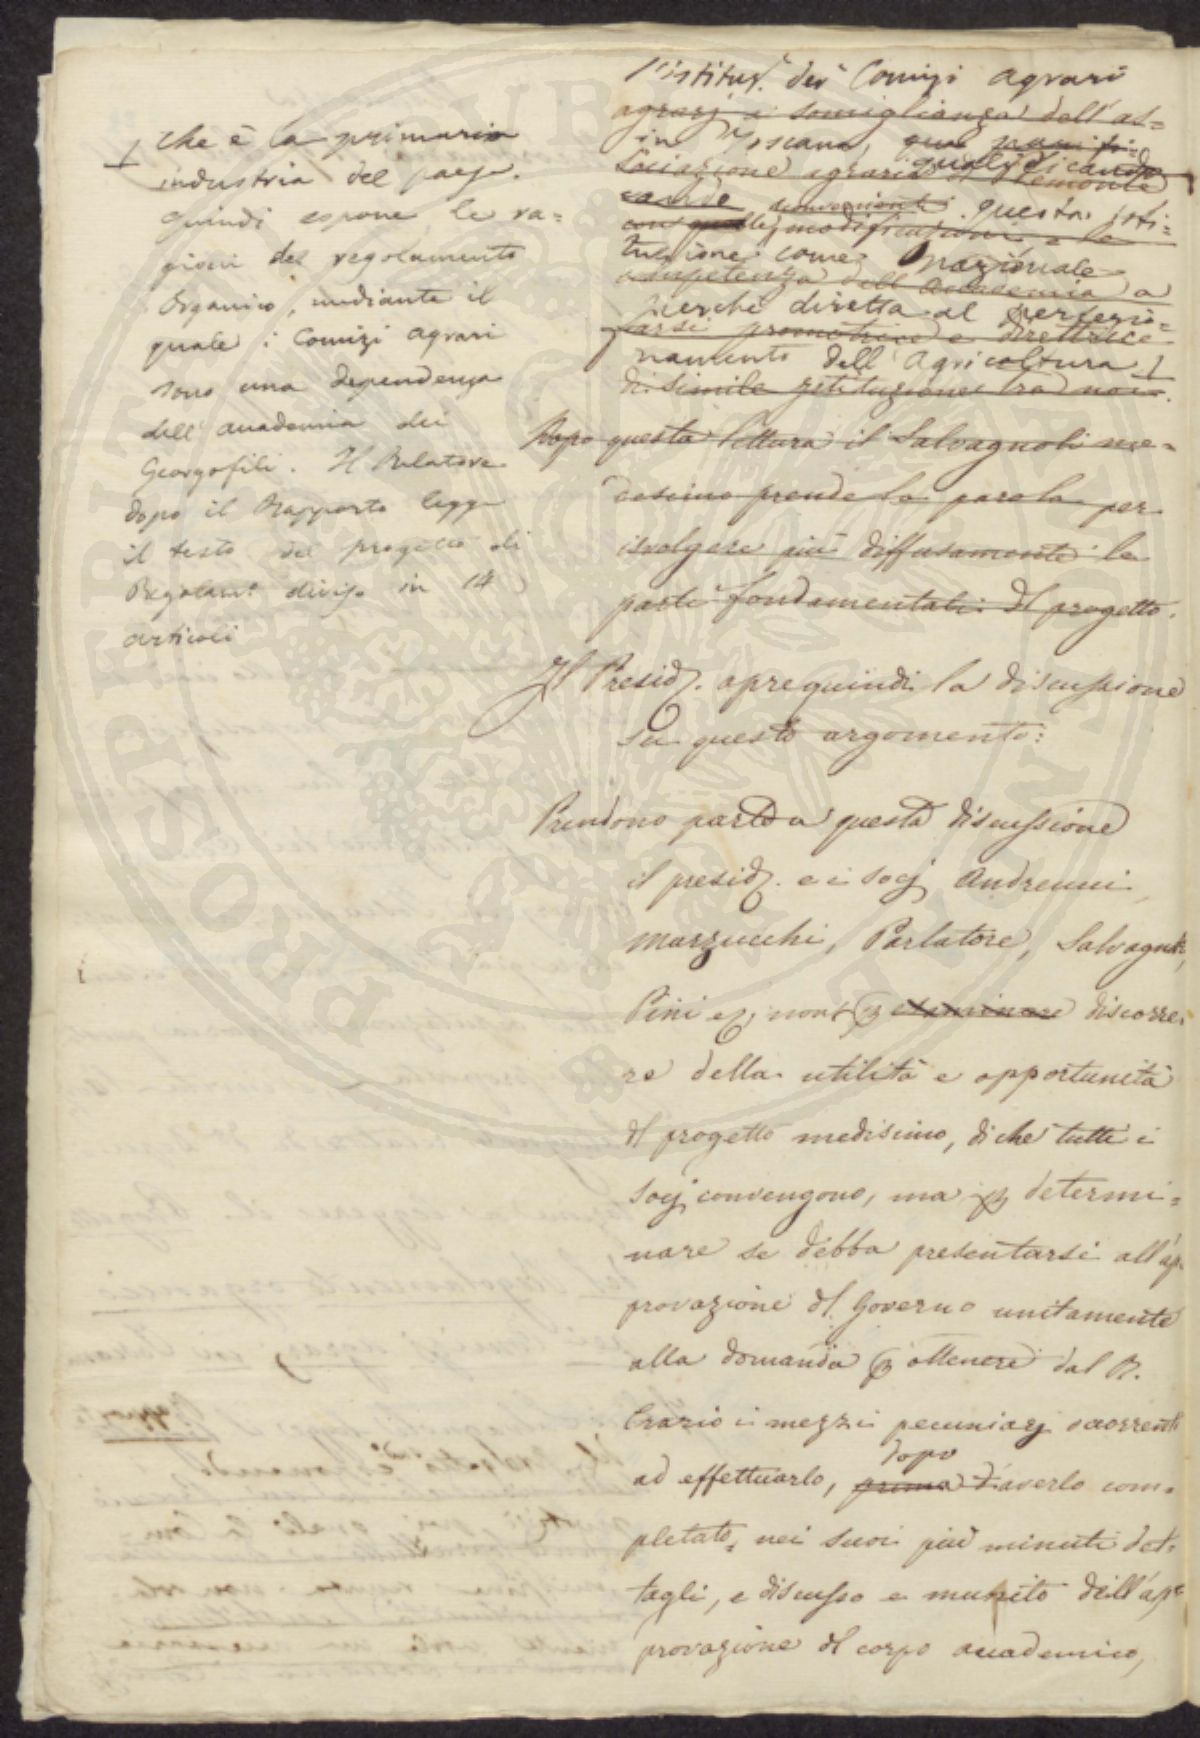 l'istituz.e dei Comizi agrari
agrarj a somiglianza dell'as=
in Toscana, qua
qualificando
sociazione agraria Piemonte
questa isti=
con quelle modificazioni, e la
tuzione come Nazionale
competenza dell'Accademia a
perchè diretta al perfezio=
farsi promotrice e direttrice
namento dell'Agricoltura
di simile istituzione tra noi.
che è la primaria
industria del paese.
Quindi espone le ra=
gioni del regolamento
organico, mediante il
quale i Comizi agrari
sono una dependenza
dell'accademia dei
Georgofili. Il Relatore
dopo il Rapporto legge
il testo del progetto di
Regolam.to diviso in 14
articoli
Dopo questa lettura il Salvagnoli me=
desimo prende la parola per
isvolgere più diffusamente le
parti fondamentali del progetto.
Il Presid. apre quindi la discussione
su questo argomento:
Prendono parte a questa discussione
il presid. e i socj Andreucci
Marzucchi, Parlatore, Salvagnoli,
Pini ec, non p esaminare discorre=
re della utilità e opportunità
del progetto medesimo, di che tutti i
socj convengono, ma p determi=
nare se debba presentarsi all'ap=
provazione del Governo unitamente
alla domanda p ottenere dal R.
Erario i mezzi pecuniarj occorrenti
dopo
ad effettuarlo, prima d'averlo com=
pletato, nei suoi più minuti det=
tagli, e discusso e munito dell'ap=
provazione del corpo accademico,